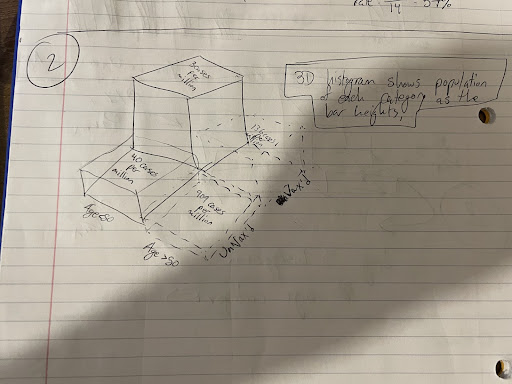 rate 14 = 57%
2
3D histogram shows population
of each category as the
bar heights.
3 cases
per
million
40 cases
per
million
per
cases
per
million
Age <50
Age >50
UnVax'd
Vax'd